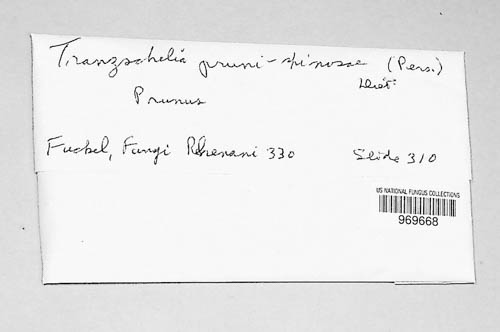 Tranzschelia pruni-spinosae (Pers.)
Diet.
Prunus
Fuckel, Fungi Rhenani 330 Slide 310
US NATIONAL FUNGUS COLLECTIONS
969668